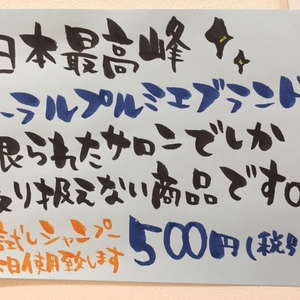 日本最高峰
ーラルプルミエブランド
限られたサロンでしか
取り扱えない商品です。
試しシャンプー
500円(税
日使用致します